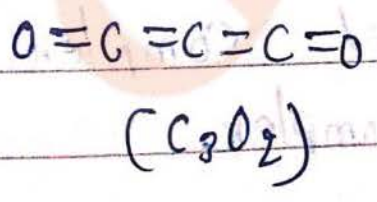 O=C=C=C=O
(C₃O₂)